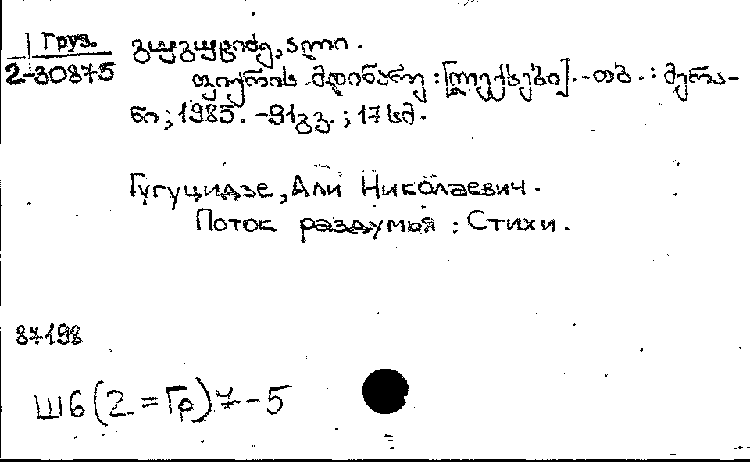 Груз.
2-30875
გუგუციძე, ალი.
ფიქრის მდინარე : [ლექსები]. - თბ. : მერა-
ნი ; 1985. - 91 გვ. ; 17 სმ.
Гугуцидзе, Али Николаевич.
Поток раздумья : Стихи.
87198
Ш6(2=Гр)7-5